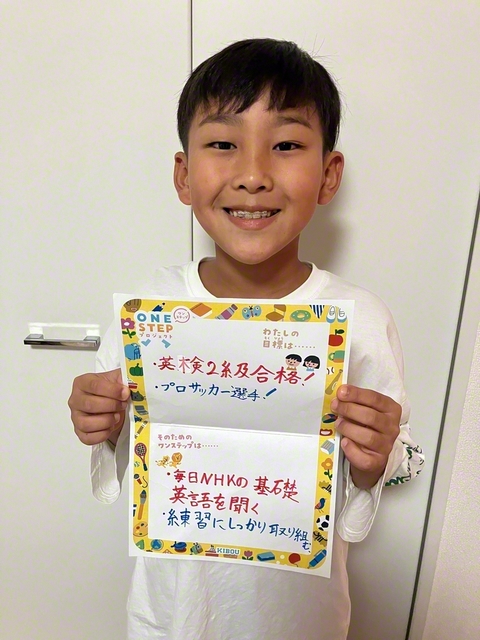 ONE
STEP
プロジェクト
わたしの
目標は……
・英検2級合格!
・プロサッカー選手!
そのための
ワンステップは……
・毎日NHKの基礎
英語を聞く
・練習にしっかり取り組
む。
KIBOU